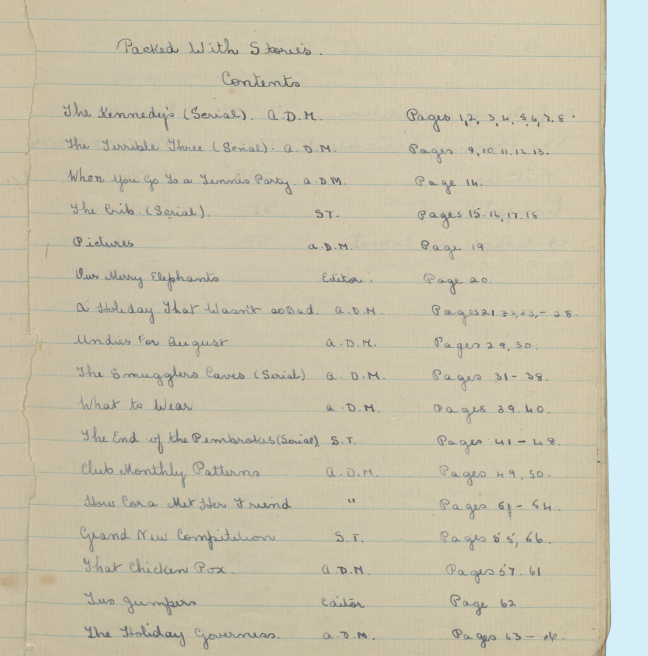 Packed With Stories.
Contents
The Kennedy's (Serial). A.D.M. Pages 1,2, 3, 4, 5, 6, 7, 8.
The Terrible Three (Serial). A.D.M. Pages 9, 10, 11, 12, 13.
When You Go To a Tennis Party. A.D.M. Page 14.
The Crib. (Serial). S.T. Pages 15. 16, 17. 18
Pictures A.D.M. Page 19
Our Merry Elephants Editor. Page 20.
A Holiday That Wasn't so Bad. A.D.M. Pages 21 22, 23, - 28.
Undies For August A.D.M. Pages 29, 30.
The Smugglers Caves (Serial) A.D.M. Pages 31 - 38.
What to Wear A.D.M. Pages 39. 40.
The End of the Pembrokes (Serial) S.T. Pages 41 - 48.
Club Monthly Patterns A.D.M. Pages 49, 50.
How Cora Met Her Friend " Pages 51 - 54.
Grand New Competition S.T. Pages 55, 56.
That Chicken Pox. A.D.M. Pages 57. 61
Two Jumpers Editor Page 62
The Holiday Governess. A.D.M. Pages 63 -